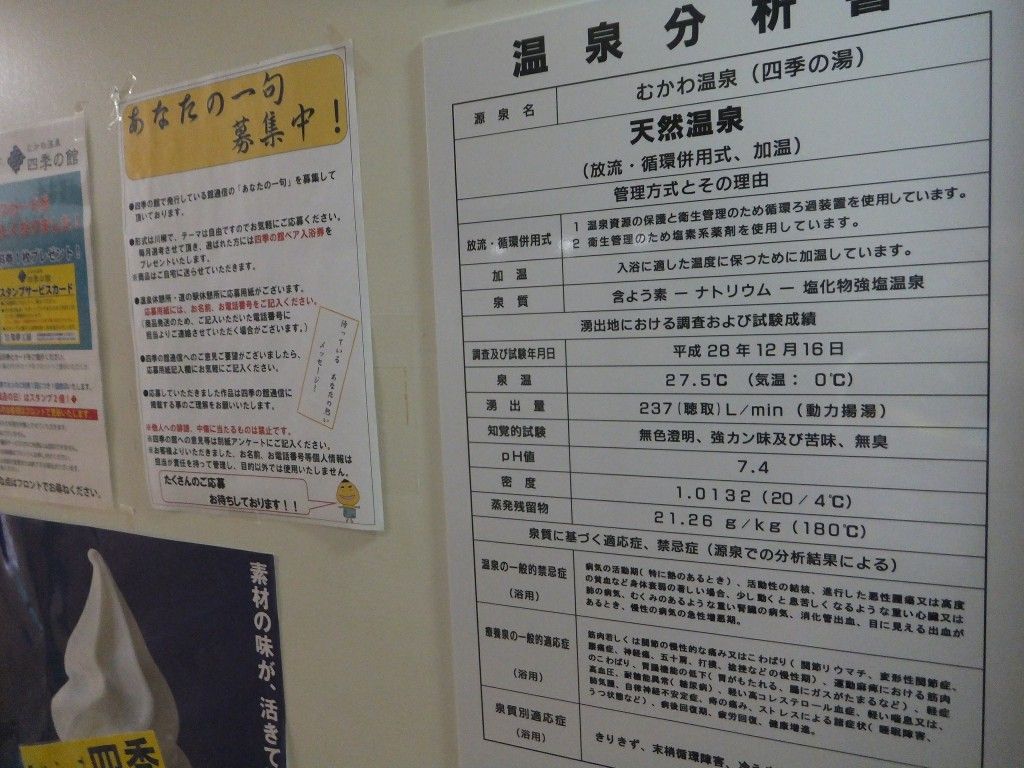 むかわ温泉
四季の館
スタンプサービスカード
あなたの一句
募集中！
●四季の館で発行している館通信の「あなたの一句」を募集して
頂いております。
●形式は川柳で、テーマは自由ですのでお気軽にご応募ください。
毎月選考させて頂き、選ばれた方には四季の館ペア入浴券を
プレゼントいたします。
※商品はご自宅に送らせていただきます。
●温泉休憩所・道の駅休憩所に応募用紙がございます。
応募用紙には、お名前、お電話番号をご記入ください。
（商品発送のため、ご記入いただいた電話番号に
担当よりご連絡させていただく場合がございます。）
●四季の館通信へのご意見ご要望がございましたら、
応募用紙記入欄にお気軽にご記入ください。
●応募していただきました作品は四季の館通信に
掲載する事のご理解をお願いいたします。
待っている あなたの熱い
メッセージ！
※他人への誹謗、中傷に当たるものは禁止です。
※四季の館への意見等は別紙アンケートにご記入ください。
※お客様よりいただきました、お名前、お電話番号等個人情報は
担当が責任を持って管理し、目的以外では使用いたしません。
たくさんのご応募
お待ちしております！！
素材の味が、活きて
四季
温泉分析書
源泉名 むかわ温泉（四季の湯）
天然温泉
（放流・循環併用式、加温）
管理方式とその理由
放流・循環併用式 1 温泉資源の保護と衛生管理のため循環ろ過装置を使用しています。
2 衛生管理のため塩素系薬剤を使用しています。
加温 入浴に適した温度に保つために加温しています。
泉質 含よう素 － ナトリウム － 塩化物強塩温泉
湧出地における調査および試験成績
調査及び試験年月日 平成28年12月16日
泉温 27.5℃ （気温： 0℃）
湧出量 237（聴取）L／min（動力揚湯）
知覚的試験 無色澄明、強カン味及び苦味、無臭
pH値 7.4
密度 1.0132（20／4℃）
蒸発残留物 21.26 g／kg（180℃）
泉質に基づく適応症、禁忌症（源泉での分析結果による）
温泉の一般的禁忌症
（浴用）
病気の活動期（特に熱のあるとき）、活動性の結核、進行した悪性腫瘍又は高度
の貧血など身体衰弱の著しい場合、少し動くと息苦しくなるような重い心臓又は
肺の病気、むくみのあるような重い腎臓の病気、消化管出血、目に見える出血が
あるとき、慢性の病気の急性増悪期。
療養泉の一般的適応症
（浴用）
筋肉若しくは関節の慢性的な痛み又はこわばり（関節リウマチ、変形性関節症、
腰痛症、神経痛、五十肩、打撲、捻挫などの慢性期）、運動麻痺における筋肉
のこわばり、胃腸機能の低下（胃がもたれる、腸にガスがたまるなど）、軽症
高血圧、耐糖能異常（糖尿病）、軽い高コレステロール血症、軽い喘息又は
肺気腫、自律神経不安定症、痔の痛み、ストレスによる諸症状（睡眠障害、
うつ状態など）、病後回復期、疲労回復、健康増進。
泉質別適応症
（浴用）
きりきず、末梢循環障害、冷え